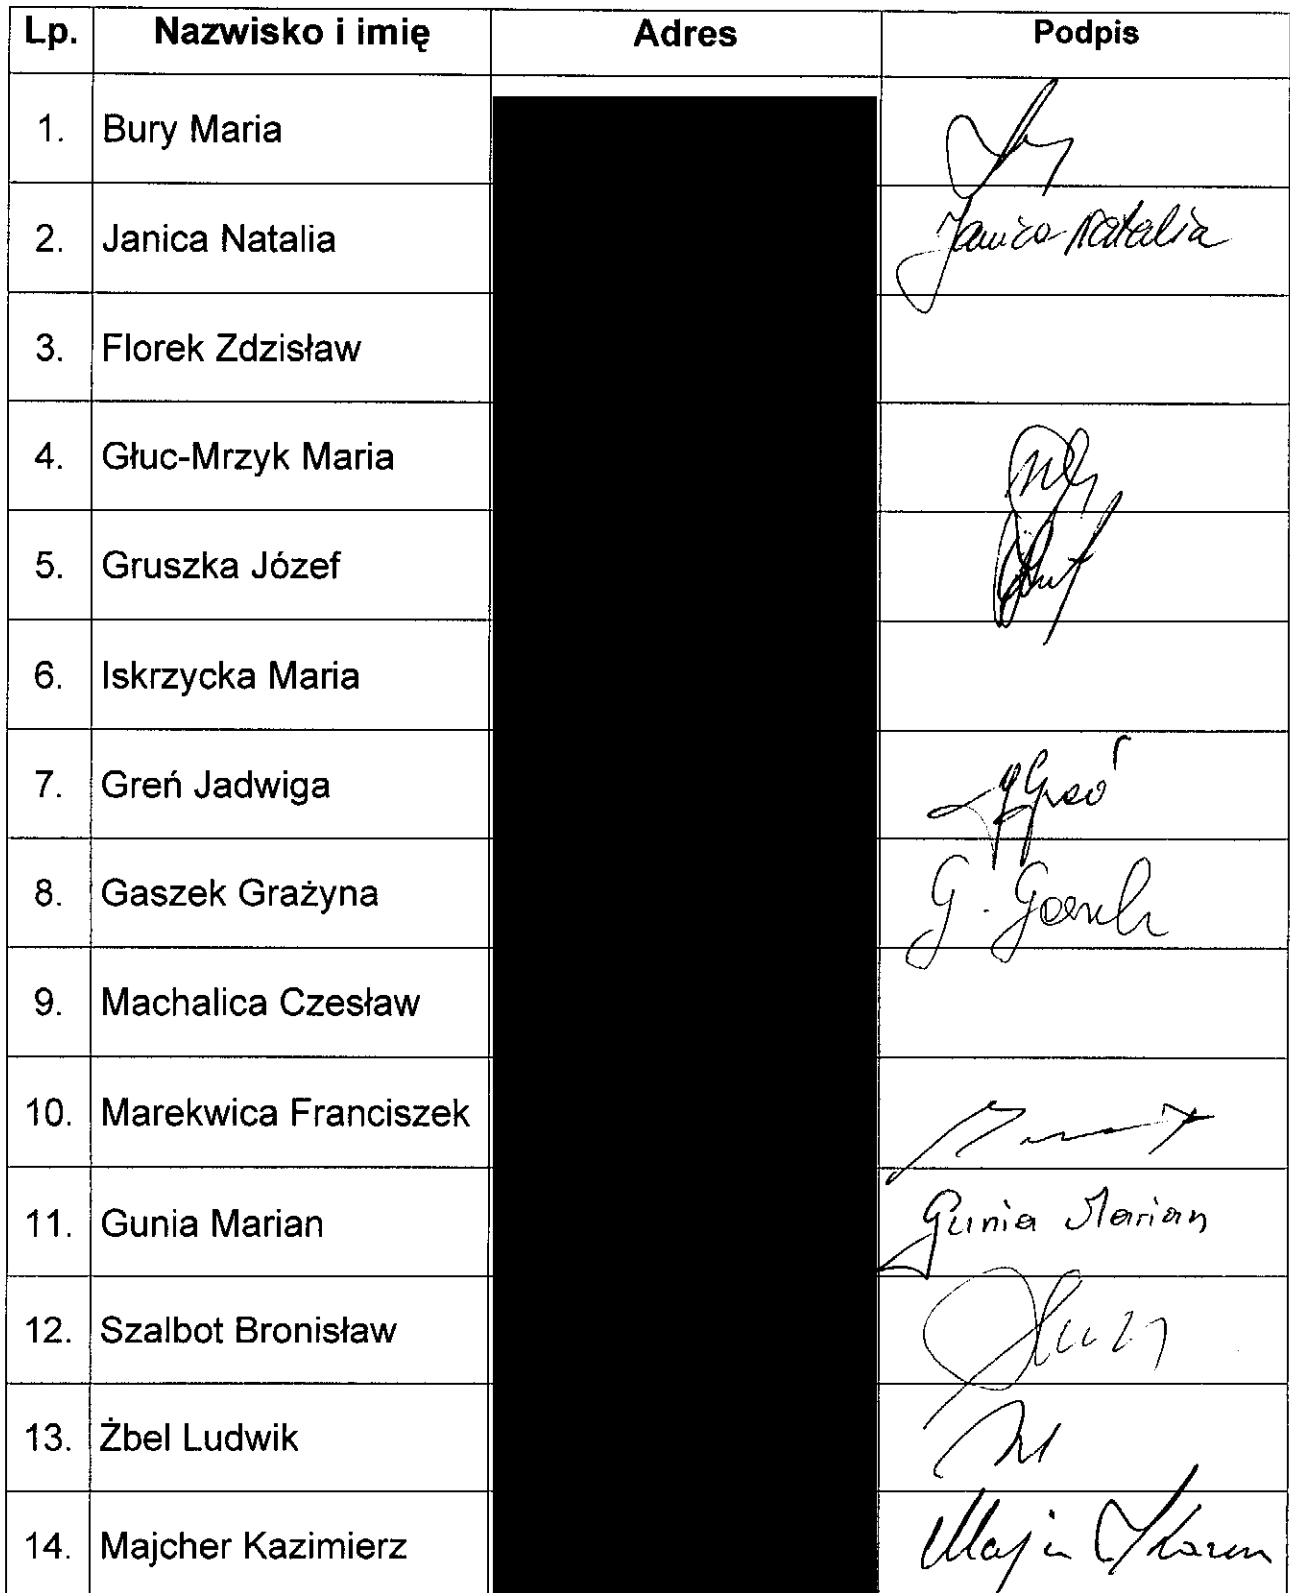 Lp. Nazwisko i imię Adres Podpis
1. Bury Maria
2. Janica Natalia Janica Natalia
3. Florek Zdzisław
4. Głuc-Mrzyk Maria
5. Gruszka Józef
6. Iskrzycka Maria
7. Greń Jadwiga
8. Gaszek Grażyna G.
9. Machalica Czesław
10. Marekwica Franciszek
11. Gunia Marian Gunia Marian
12. Szalbot Bronisław
13. Żbel Ludwik
14. Majcher Kazimierz